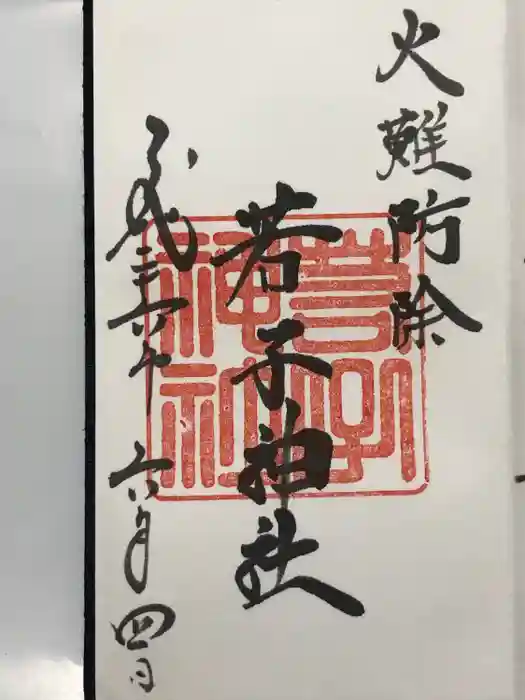 火難防除
若子神社
若子
神社
平成
年六月四日